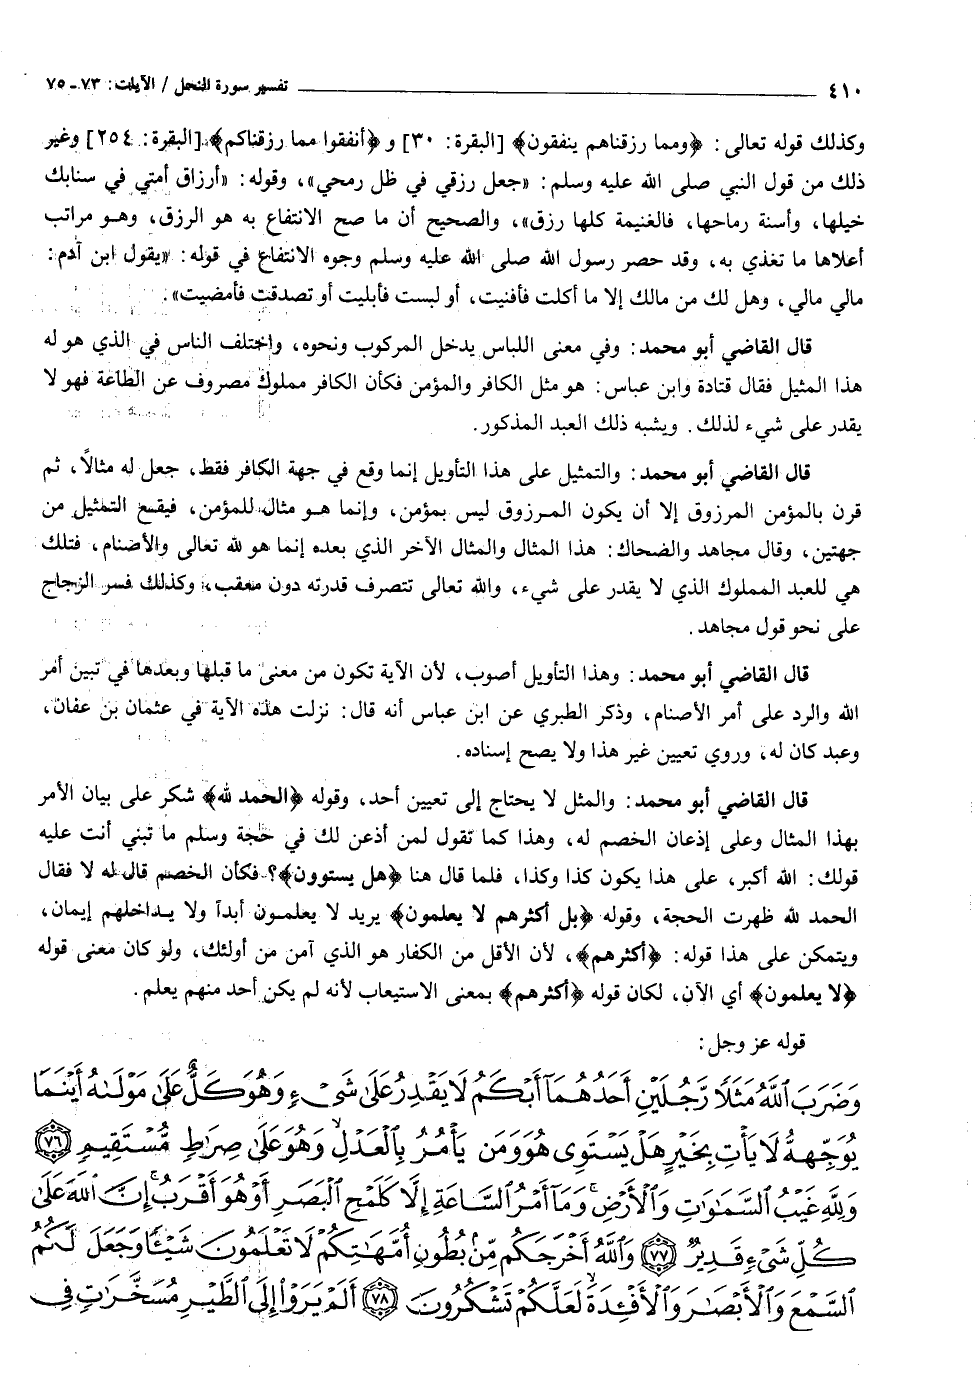 ٤١٠ تفسير سورة النحل / الآيات: ٧٣ـ ٧٥
وكذلك قوله تعالى: ﴿ومما رزقناهم ينفقون﴾ [البقرة: ٣٠] و﴿أنفقوا مما رزقناكم﴾ [البقرة: ٢٥٤] وغير
ذلك من قول النبي صلى الله عليه وسلم: «جعل رزقي في ظل رمحي»، وقوله: «أرزاق أمتي في سنابك
خيلها، وأسنة رماحها، فالغنيمة كلها رزق»، والصحيح أن ما صح الانتفاع به هو الرزق، وهو مراتب
أعلاها ما تغذي به، وقد حصر رسول الله صلى الله عليه وسلم وجوه الانتفاع في قوله: «يقول ابن آدم:
مالي مالي، وهل لك من مالك إلا ما أكلت فأفنيت، أو لبست فأبليت أو تصدقت فأمضيت».
قال القاضي أبو محمد: وفي معنى اللباس يدخل المركوب ونحوه، واختلف الناس في الذي هو له
هذا المثيل فقال قتادة وابن عباس: هو مثل الكافر والمؤمن فكأن الكافر مملوك مصروف عن الطاعة فهو لا
يقدر على شيء لذلك. ويشبه ذلك العبد المذكور.
قال القاضي أبو محمد: والتمثيل على هذا التأويل إنما وقع في جهة الكافر فقط، جعل له مثالاً، ثم
قرن بالمؤمن المرزوق إلا أن يكون المرزوق ليس بمؤمن، وإنما هو مثال للمؤمن، فيقع التمثيل من
جهتين، وقال مجاهد والضحاك: هذا المثال والمثال الآخر الذي بعده إنما هو لله تعالى والأصنام، فتلك
هي للعبد المملوك الذي لا يقدر على شيء، والله تعالى تتصرف قدرته دون معقب، وكذلك فسر الزجاج
على نحو قول مجاهد.
قال القاضي أبو محمد: وهذا التأويل أصوب، لأن الآية تكون من معنى ما قبلها وبعدها في تبين أمر
الله والرد على أمر الأصنام، وذكر الطبري عن ابن عباس أنه قال: نزلت هذه الآية في عثمان بن عفان،
وعبد كان له، وروي تعيين غير هذا ولا يصح إسناده.
قال القاضي أبو محمد: والمثل لا يحتاج إلى تعيين أحد، وقوله ﴿الحمد لله﴾ شكر على بيان الأمر
بهذا المثال وعلى إذعان الخصم له، وهذا كما تقول لمن أذعن لك في حجة وسلم ما تبني أنت عليه
قولك: الله أكبر، على هذا يكون كذا وكذا، فلما قال هنا ﴿هل يستوون﴾؟ فكأن الخصم قال له لا فقال
الحمد لله ظهرت الحجة، وقوله ﴿بل أكثرهم لا يعلمون﴾ يريد لا يعلمون أبداً ولا يداخلهم إيمان،
ويتمكن على هذا قوله: ﴿أكثرهم﴾، لأن الأقل من الكفار هو الذي آمن من أولئك، ولو كان معنى قوله
﴿لا يعلمون﴾ أي الآن، لكان قوله ﴿أكثرهم﴾ بمعنى الاستيعاب لأنه لم يكن أحد منهم يعلم.
قوله عز وجل:
وَضَرَبَ ٱللَّهُ مَثَلًا رَّجُلَيْنِ أَحَدُهُمَآ أَبْكَمُ لَا يَقْدِرُ عَلَىٰ شَىْءٍ وَهُوَ كَلٌّ عَلَىٰ مَوْلَىٰهُ أَيْنَمَا
يُوَجِّههُّ لَا يَأْتِ بِخَيْرٍ هَلْ يَسْتَوِى هُوَ وَمَن يَأْمُرُ بِٱلْعَدْلِ وَهُوَ عَلَىٰ صِرَٰطٍ مُّسْتَقِيمٍ ﴿٧٦﴾
وَلِلَّهِ غَيْبُ ٱلسَّمَٰوَٰتِ وَٱلْأَرْضِ وَمَآ أَمْرُ ٱلسَّاعَةِ إِلَّا كَلَمْحِ ٱلْبَصَرِ أَوْ هُوَ أَقْرَبُ إِنَّ ٱللَّهَ عَلَىٰ
كُلِّ شَىْءٍ قَدِيرٌ ﴿٧٧﴾ وَٱللَّهُ أَخْرَجَكُم مِّنۢ بُطُونِ أُمَّهَٰتِكُمْ لَا تَعْلَمُونَ شَيْـًٔا وَجَعَلَ لَكُمُ
ٱلسَّمْعَ وَٱلْأَبْصَٰرَ وَٱلْأَفْـِٔدَةَ لَعَلَّكُمْ تَشْكُرُونَ ﴿٧٨﴾ أَلَمْ يَرَوْا۟ إِلَى ٱلطَّيْرِ مُسَخَّرَٰتٍ فِى